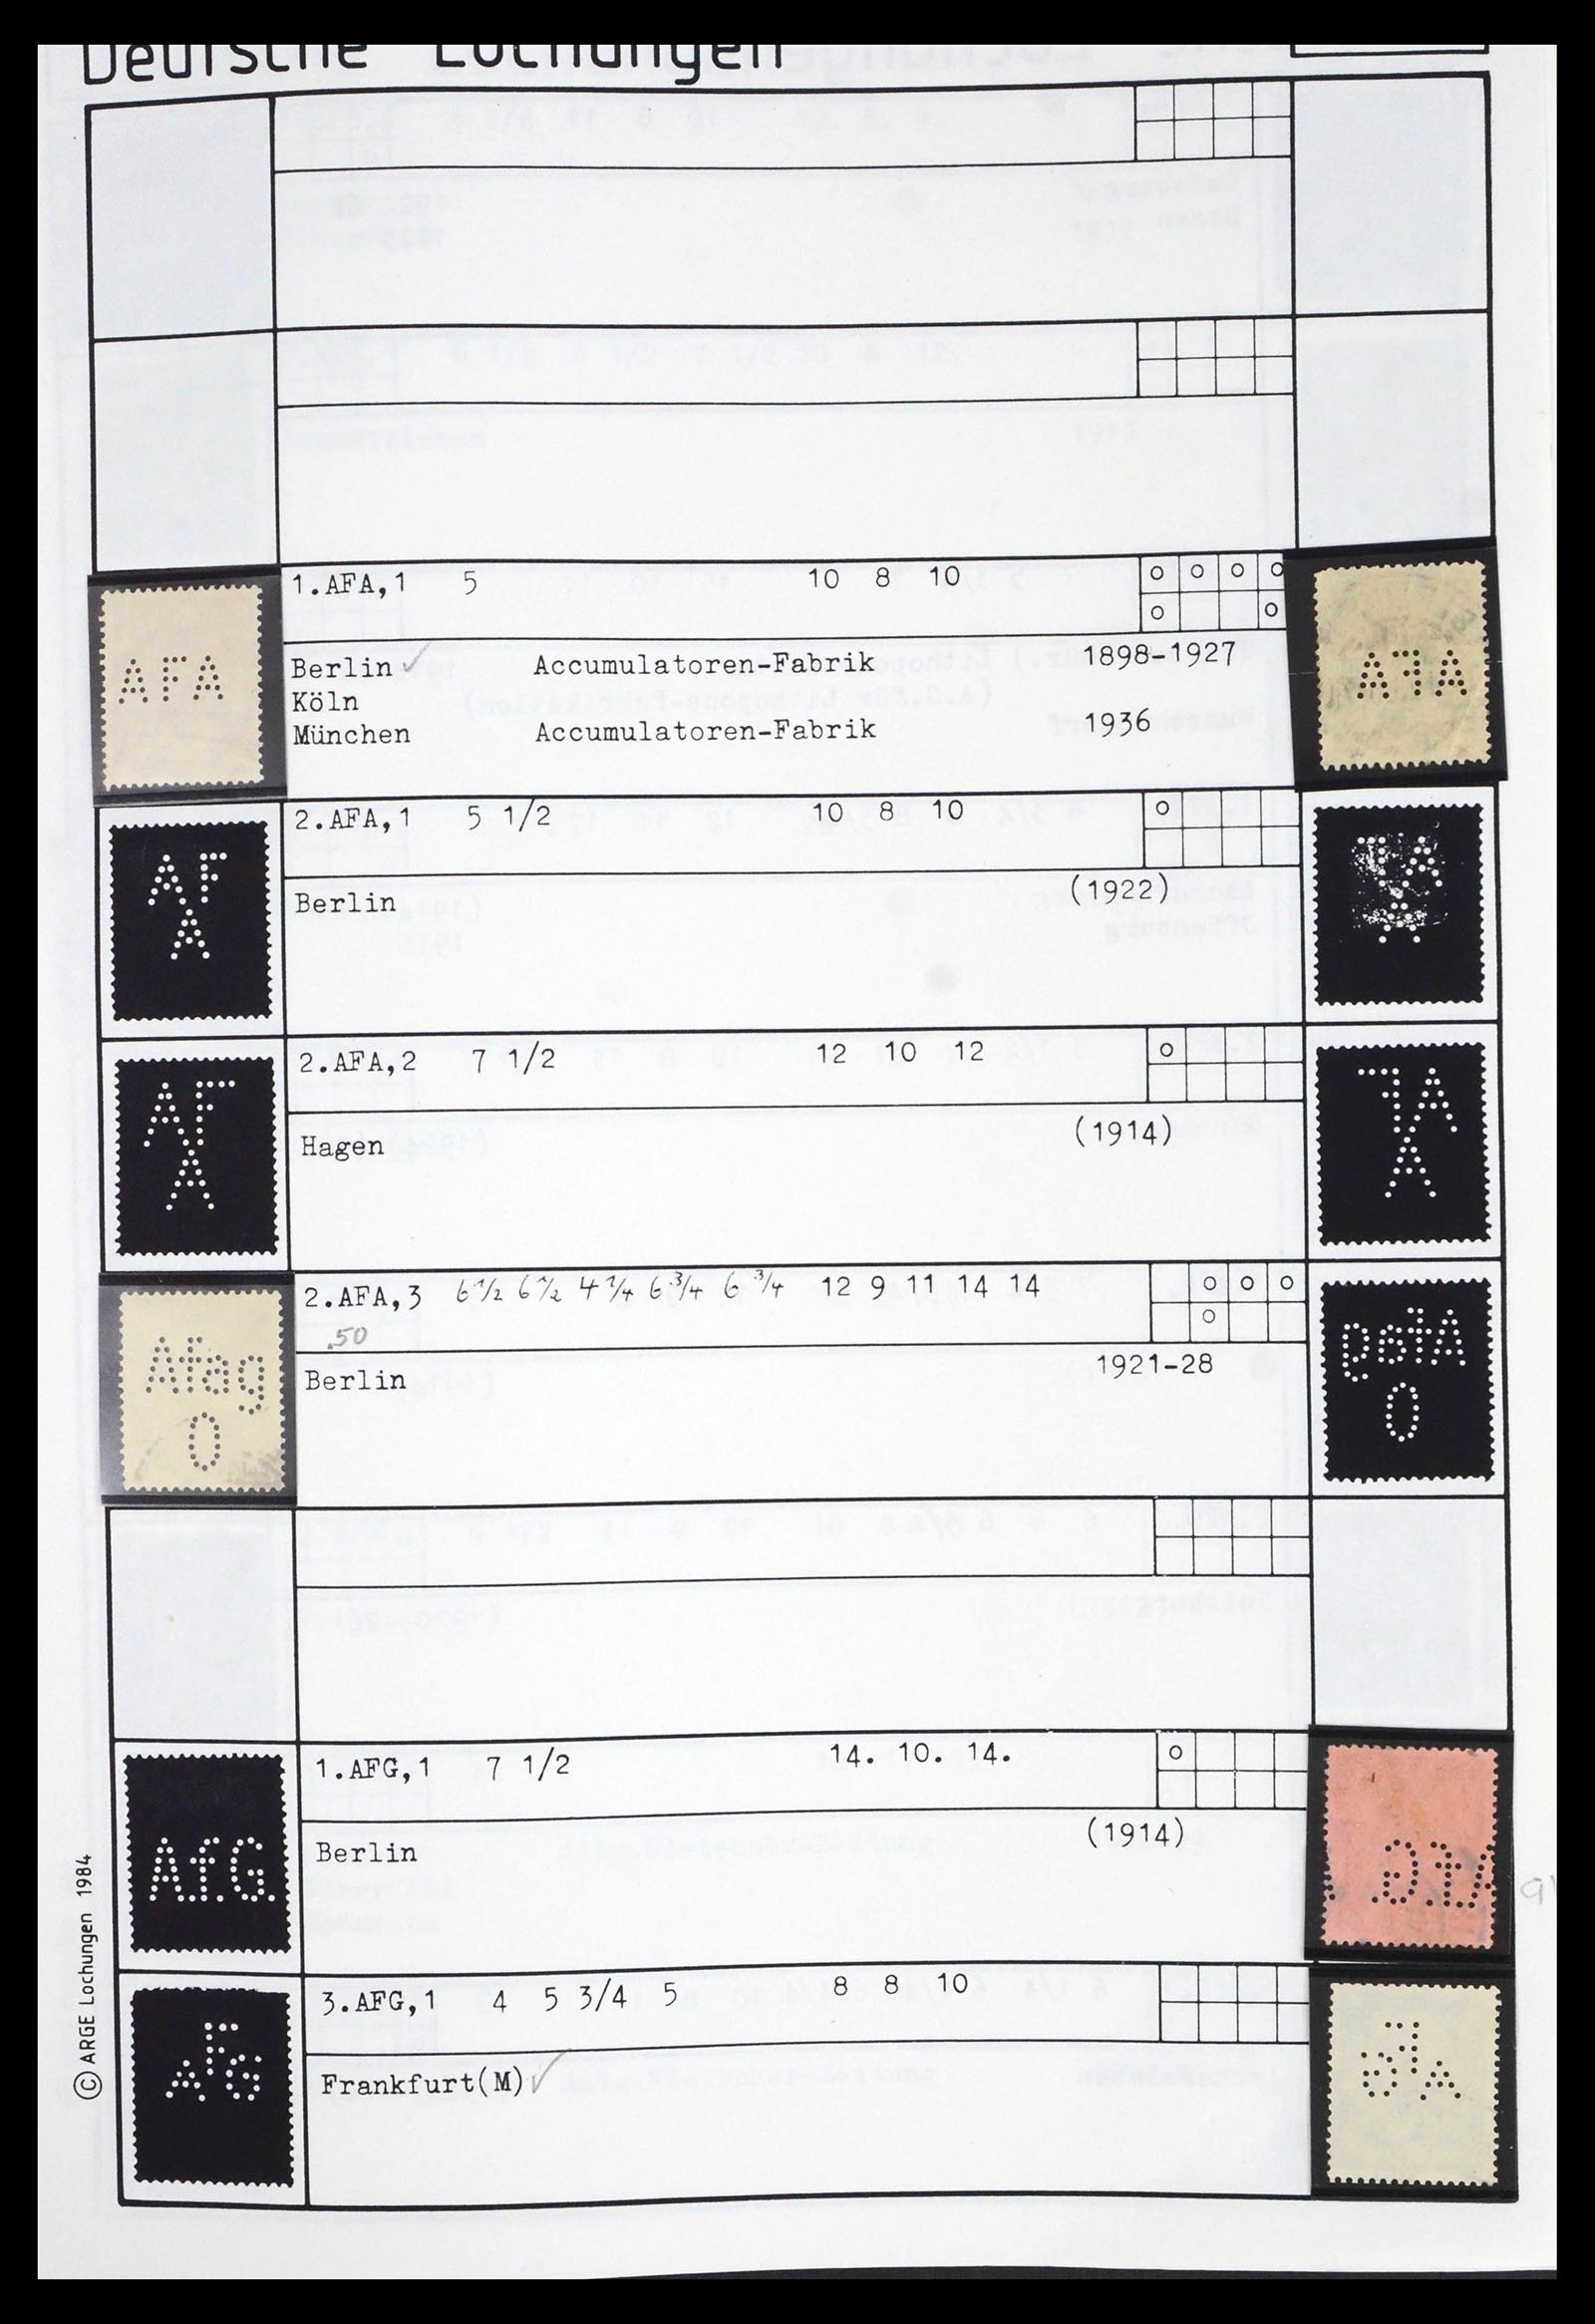 Deutsche Lochungen
1.AFA,1 5 10 8 10 o o o o
o o
AFA
Berlin ✓ Accumulatoren-Fabrik 1898-1927
Köln
München Accumulatoren-Fabrik 1936
AFA
2.AFA,1 5 1/2 10 8 10 o
AF
A
Berlin (1922)
2.AFA,2 7 1/2 12 10 12 o
AF
A
Hagen (1914)
AF
A
2.AFA,3 6 1/2 6 1/2 4 1/4 6 3/4 6 3/4 12 9 11 14 14 o o o
.50 o
Afag
O
Berlin 1921-28
Afag
O
1.AFG,1 7 1/2 14. 10. 14. o
A.f.G.
Berlin (1914)
AFG.
3.AFG,1 4 5 3/4 5 8 8 10
F
AG
Frankfurt(M) ✓
F
AG
© ARGE Lochungen 1984